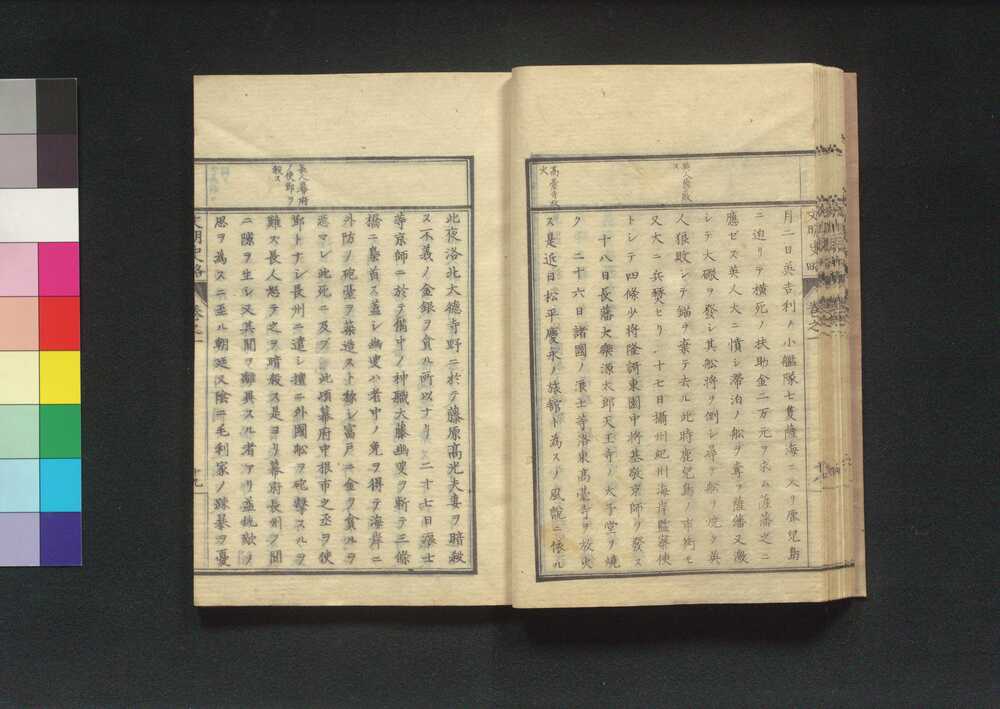 月二日英吉利ノ小艦隊七隻薩海ニ入リ鹿児島
ニ迫リテ横死ノ扶助金二万元ヲ求ム薩藩之ニ
應ゼス英人大ニ憤シ滞泊ノ船ヲ奪フ薩藩又激
シテ大礟ヲ發シ其船將ヲ倒シ尋テ船ヲ焼ク英
人狼敗シテ錨ヲ棄テ去ル此時鹿児島ノ市街モ
又大ニ兵燹セリ十七日攝州紀州海岸監察使
トシテ四條少将隆謌東園中将基敬京師ヲ發ス
十八日長藩大樂源太郎天王寺ノ太子堂ヲ燒
ク二十六日諸國ノ浪士等洛東高臺寺ヲ放火
ス是近日松平慶永ノ旅館ト為スノ風說ニ依ル
高臺寺放火
文明史略
巻之一
十九
此夜洛北大德寺野ニ於テ藤原高光夫妻ヲ暗殺
ス不義ノ金銀ヲ貪ル所以ナリ二十七日浪士
等京師ニ於テ備中ノ神職大藤幽叟ヲ斬テ三條
橋ニ梟首ス蓋シ幽叟ハ者中ノ免ヲ得テ海岸ニ
外防ノ砲臺ヲ築造スト稱シ富戸ニ金ヲ貪ルヲ
惡マレ此死ニ及ブ此頃幕府中根市之丞ヲ使
節トナシ長州ニ遣シ擅ニ外國船ヲ砲擊スルヲ
難ス長人怒テ之ヲ暗殺ス是ヨリ幕府長州ヲ間
ニ隙ヲ生シ又其間ヲ離異スル者アリ益桃歟ヲ
思ヲ為スニ至ル朝廷又陰ニ毛利家ノ疎暴ヲ憂
長人幕府ノ使節ヲ殺ス
文明史略
巻之一
十九